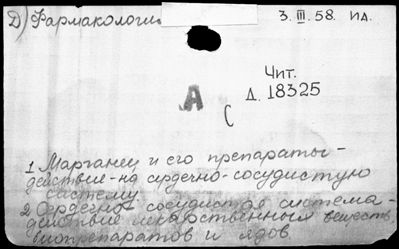 Д) Фармакология
3. III. 58. ИД.
Чит.
Д. 18325
А
С
1. Марганец и его препараты -
действие - на сердечно-сосудистую
систему
2. Сердечно сосудистая система -
действие лекарственных веществ,
биопрепаратов и ядов